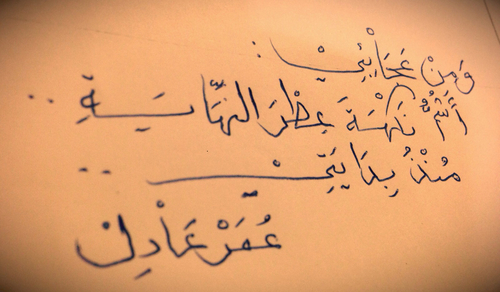 وَمِنْ عَجَائِبيْ :
نَكْهَةَ عِطْرَ النهَّايَـــةِ ..
مُنْذُ بِدَايَتِيْ ..
عُمَرْ عَادِلْ